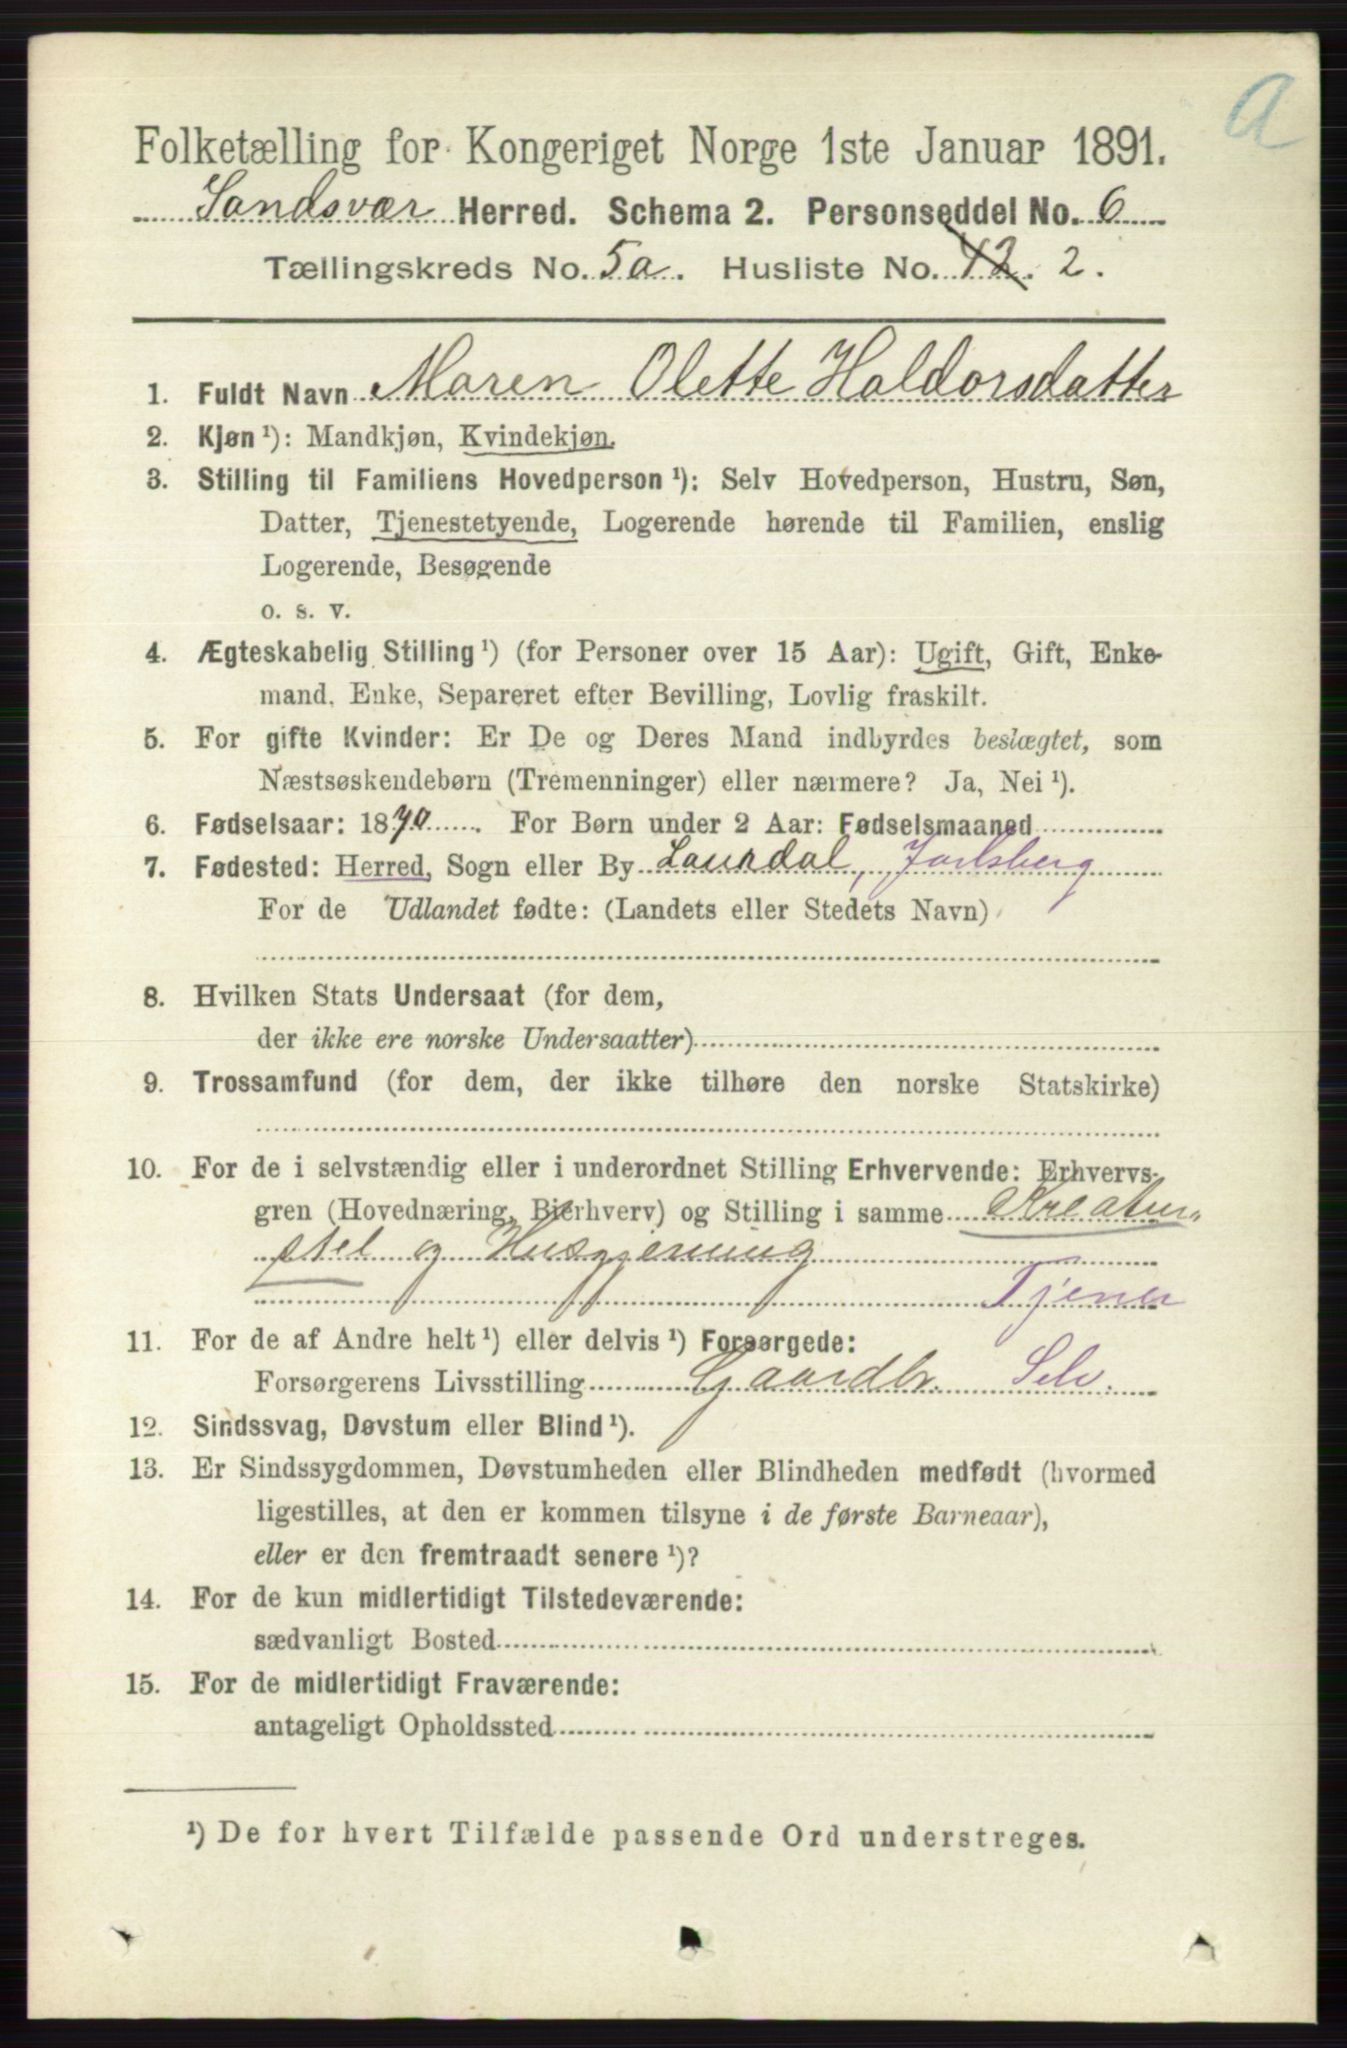 A
Folketælling for Kongeriget Norge 1ste Januar 1891.
Sandsvær Herred. Schema 2. Personseddel No. 6
Tællingskreds No. 5a. Husliste No. 12. 2.
1. Fuldt Navn Maren Olette Haldorsdatter
2. Kjøn ¹): Mandkjøn, Kvindekjøn.
3. Stilling til Familiens Hovedperson ¹): Selv Hovedperson, Hustru, Søn,
Datter, Tjenestetyende, Logerende hørende til Familien, enslig
Logerende, Besøgende
o. s. v.
4. Ægteskabelig Stilling ¹) (for Personer over 15 Aar): Ugift, Gift, Enke-
mand, Enke, Separeret efter Bevilling, Lovlig fraskilt.
5. For gifte Kvinder: Er De og Deres Mand indbyrdes beslægtet, som
Næstsøskendebørn (Tremenninger) eller nærmere? Ja, Nei ¹).
6. Fødselsaar: 1870. For Børn under 2 Aar: Fødselsmaaned
7. Fødested: Herred, Sogn eller By Laurdal, Jarlsberg
For de Udlandet fødte: (Landets eller Stedets Navn)
8. Hvilken Stats Undersaat (for dem,
der ikke ere norske Undersaatter)
9. Trossamfund (for dem, der ikke tilhøre den norske Statskirke)
10. For de i selvstændig eller i underordnet Stilling Erhvervende: Erhvervs-
gren (Hovednæring, Bierhverv) og Stilling i samme Kreatur-
stel og Husgjerning
Tjener
11. For de af Andre helt ¹) eller delvis ¹) Forsørgede:
Forsørgerens Livsstilling Gaardbr. Selv.
12. Sindssvag, Døvstum eller Blind ¹).
13. Er Sindssygdommen, Døvstumheden eller Blindheden medfødt (hvormed
ligestilles, at den er kommen tilsyne i de første Barneaar),
eller er den fremtraadt senere ¹)?
14. For de kun midlertidigt Tilstedeværende:
sædvanligt Bosted
15. For de midlertidigt Fraværende:
antageligt Opholdssted
¹) De for hvert Tilfælde passende Ord understreges.